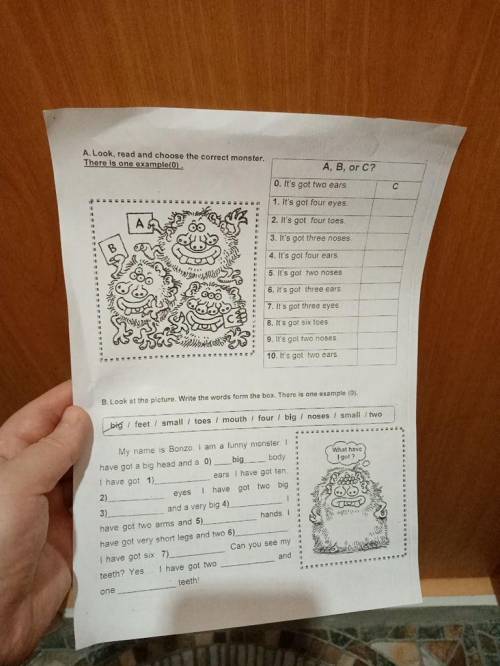 A. Look, read and choose the correct monster.
There is one example(0) .
A, B, or C?
0. It's got two ears. C
1. It's got four eyes.
2. It's got four toes.
3. It's got three noses.
4. It's got four ears.
5. It's got two noses
6. It's got three ears.
7. It's got three eyes
8. It's got six toes
9. It's got two noses
10. It's got two ears.
A
B
C
B. Look at the picture. Write the words form the box. There is one example (0).
big / feet / small / toes / mouth / four / big / noses / small / two
My name is Bonzo. I am a funny monster. I
have got a big head and a 0) ____big____ body.
I have got 1)______________ ears. I have got ten,
2)______________ eyes. I have got two big
3)______________ and a very big 4)__________. I
have got two arms and 5)__________ hands. I
have got very short legs and two 6)__________
I have got six 7)__________. Can you see my
teeth? Yes.... I have got two __________ and
one __________ teeth!
What have
I got ?